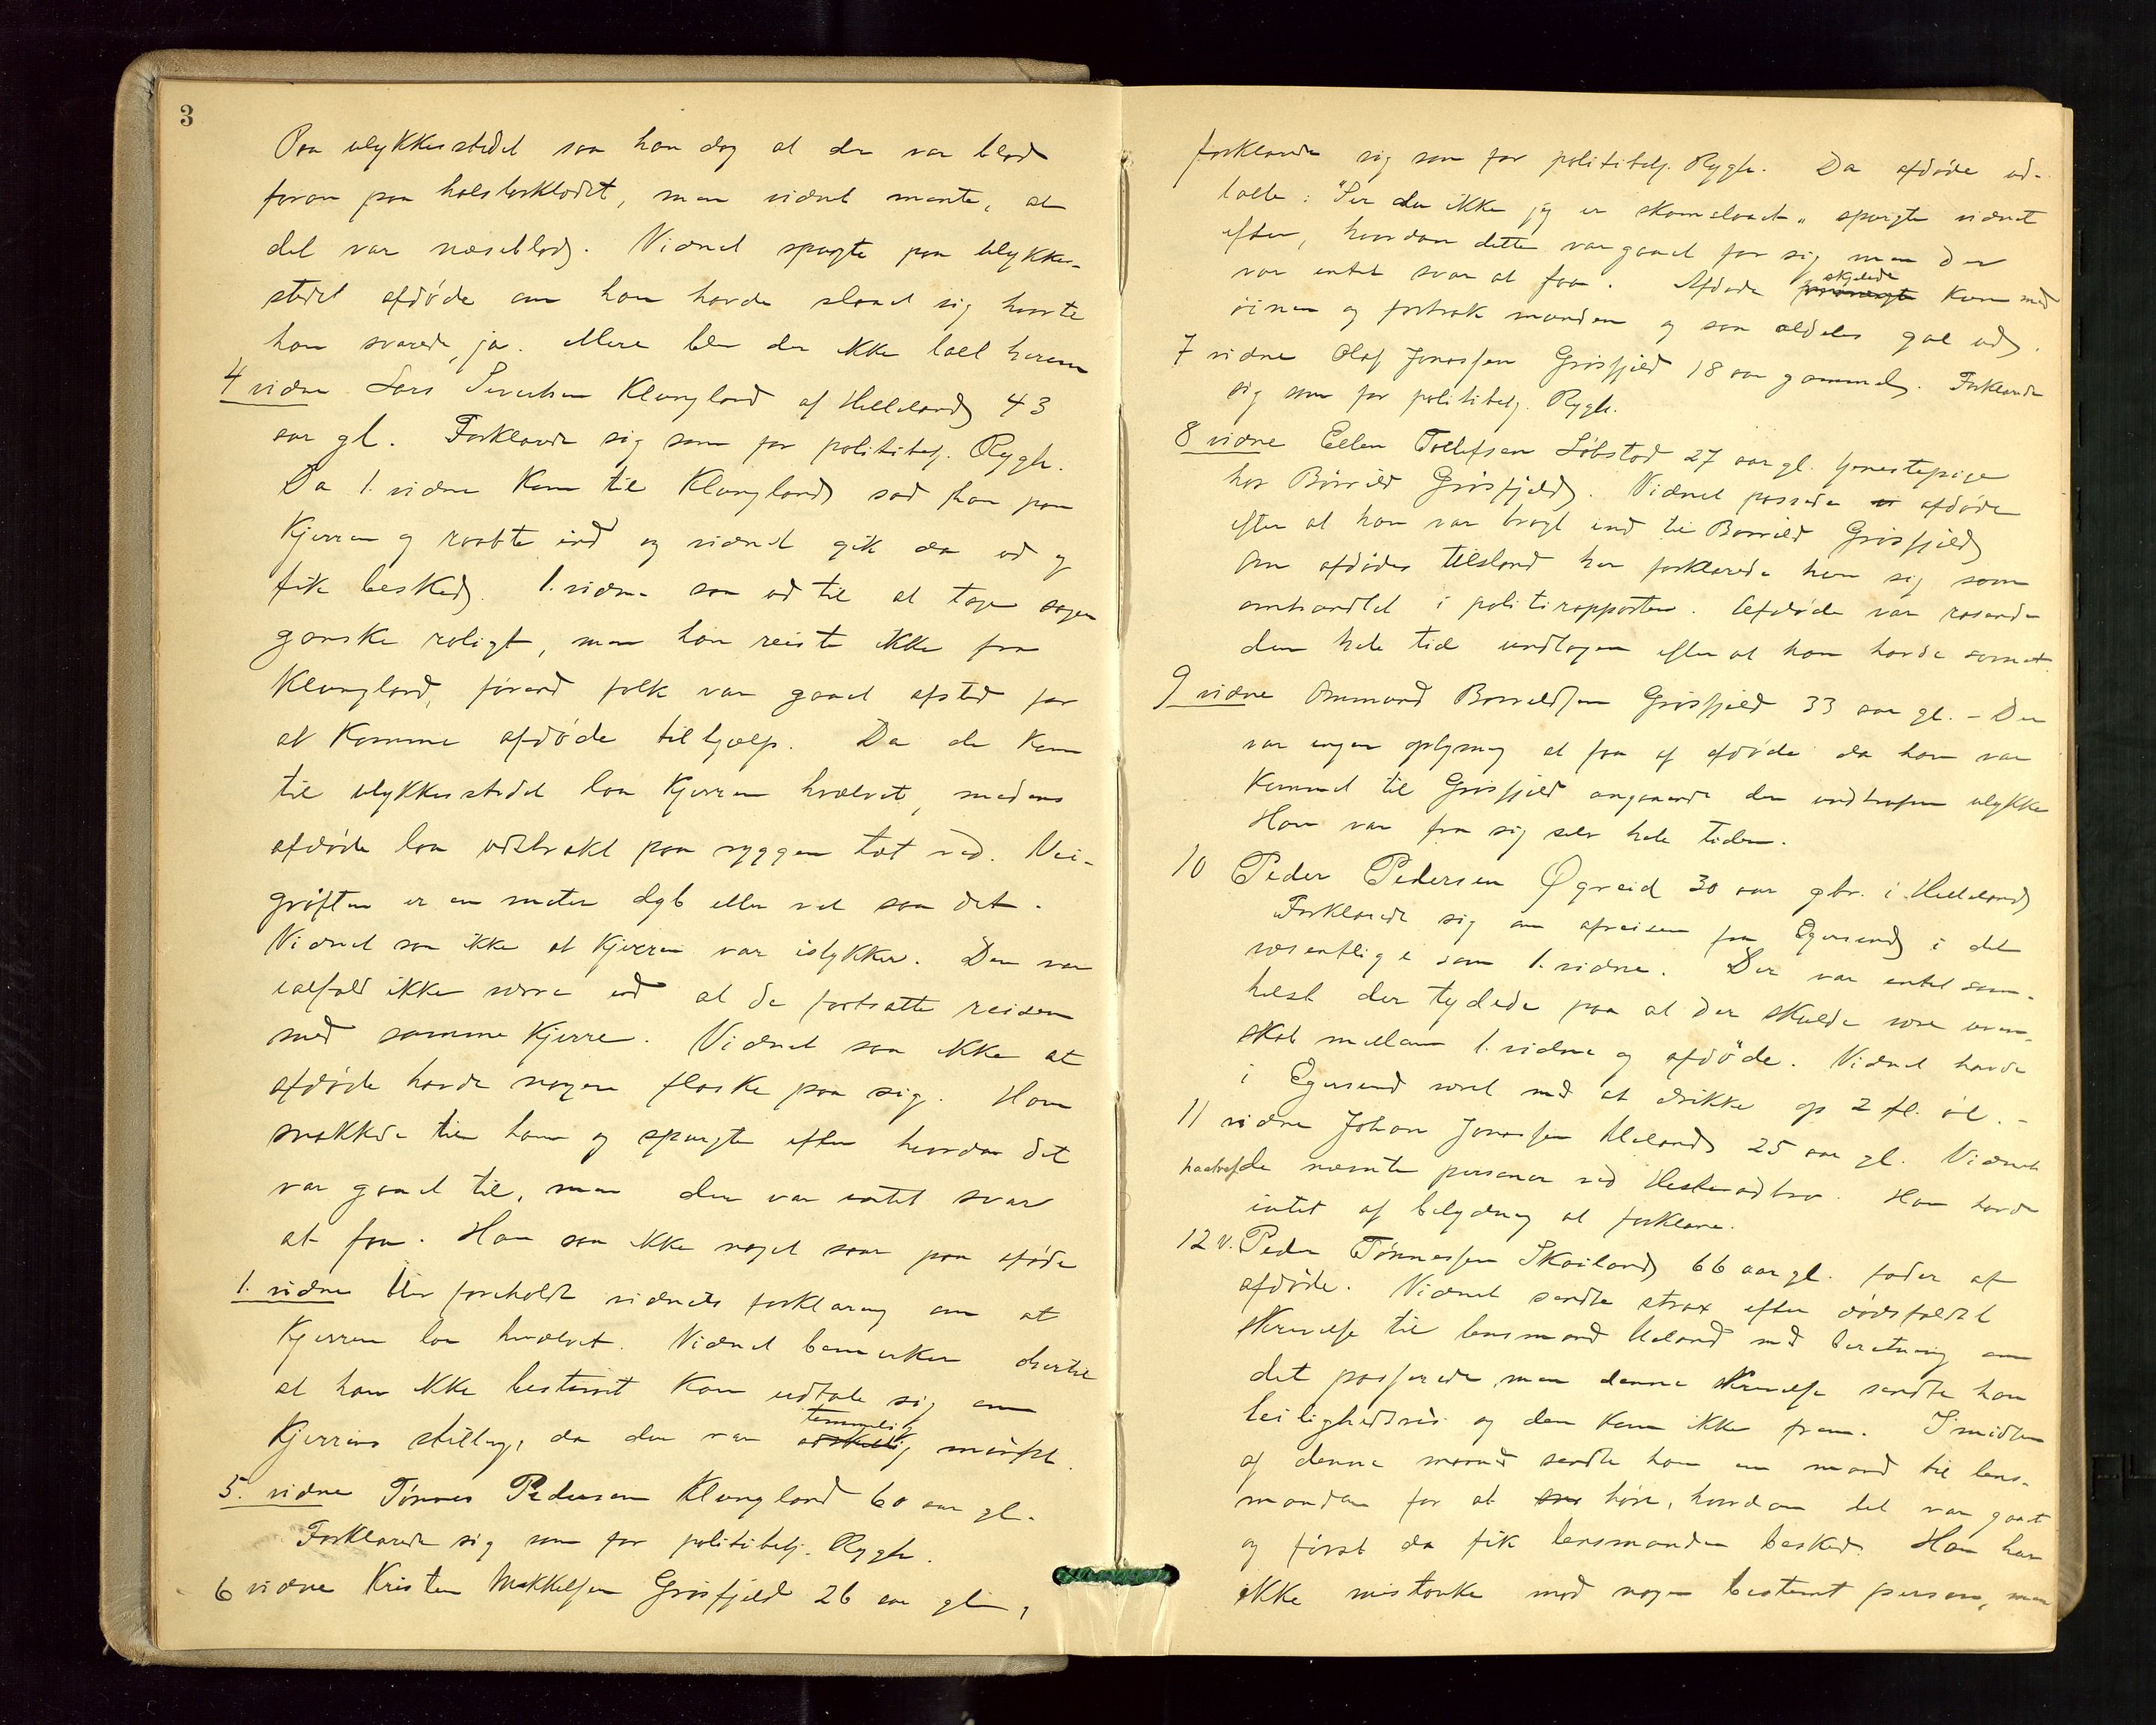 3
Paa ulykkesstedet saa han dog at der var blod
foran paa halstørklædet, men vidnet mente, at
det var næseblod. Vidnet spurgte paa ulykkes-
stedet afdøde om han havde slaaet sig hvorte
han svarede, ja. Mere blev der ikke talt herom
4 vidne Lars Sivertsen Klungland af Helleland 43
aar gl. Forklarede sig som for politibetj. Rygh.
Da 1. vidne kom til Klungland sad han paa
Kjerren og raabte ind og vidnet gik da ud og
fik besked. 1. vidne saa ud til at tage sagen
ganske roligt, men han reiste ikke fra
Klungland, førend folk var gaaet afsted for
at komme afdøde til hjælp. Da de kom
til ulykkesstedet laa Kjerren hvælvet, medens
afdøde laa udstrakt paa ryggen tæt ved. Vei-
grøften er en meter dyb eller vel saa det.
Vidnet saa ikke at Kjerren var istykker. Den var
ialfald ikke værre end at de fortsatte reisen
med samme Kjerre. Vidnet saa ikke at
afdøde havde nogen flaske paa sig. Han
snakkede til ham og spurgte efter hvordan det
var gaaet til, men der var intet svar
at faa. Han saa ikke noget saar paa afdøde
1. vidne blev foreholdt vidnets forklaring om at
Kjerren laa hvælvet. Vidnet bemerker hertil
at han ikke bestemt kan udtale sig om
temmelig
Kjerrens stilling, da der var mørkt.
5. vidne Tønnes Pedersen Klungland 60 aar gl.
Forklarede sig som for politibetj. Rygh.
6 vidne Kristen Mikkelsen Grøsfjeld 26 aar gl.,
forklarede sig som for politibetj. Rygh. Da afdøde ud-
talte: "Ser du ikke jeg er skamslaaet" spurgte vidnet
efter, hvordan dette var gaaet for sig men der
skjelede
var intet svar at faa. Afdøde kun med
øinen og fortrak munden og saa aldeles gal ud.
7 vidne Olaf Jonassen Grøsfjeld 18 aar gammel. Forklarede
sig som for politibetj. Rygh.
8 vidne Ellen Tollefsen Løbstad 27 aar gl. tjenestepige
hos Børrild Grøsfjeld. Vidnet passede afdøde
efter at han var bragt ind til Børrild Grøsfjeld
Om afdødes tilstand her forklarede hun sig som
omhandlet i politirapporten. Afdøde var rasende
den hele tid undtagen efter at han havde sovnet.
9 vidne Ommund Børrildsen Grøsfjeld 33 aar gl. – Der
var ingen oplysning at faa af afdøde da han var
Kommet til Grøsfjeld angaaende den indtrufne ulykke
Han var fra sig selv hele tiden.
10 Peder Pedersen Øgreid 30 aar gbr. i Helleland
Forklarede sig om afreisen fra Egersund i det
væsentlige som 1. vidne. Der var intet som-
helst der tydede paa at der skulde være uven-
skab mellem 1. vidne og afdøde. Vidnet havde
i Egersund været med at drikke op 2 fl. øl. –
11 vidne Johan Jonassen Ueland 25 aar gl. Vidnet
paatrafde nævnte personer ved Hestvadbro. Han havde
intet af betydning at forklare.
12 v. Peder Tønnessen Skailand 66 aar gl. fader af
afdøde. Vidnet sendte strax efter dødsfaldet
skrivelse til lensmand Ueland med beretning om
det passerede men denne skrivelse sendte han
leilighedsvis og den kom ikke frem. I midten
af denne maaned sendte han en mand til lens-
manden for at høre, hvordan det var gaaet
og først da fik lensmanden besked. Han har
ikke mistanke mod nogen bestemt person, men